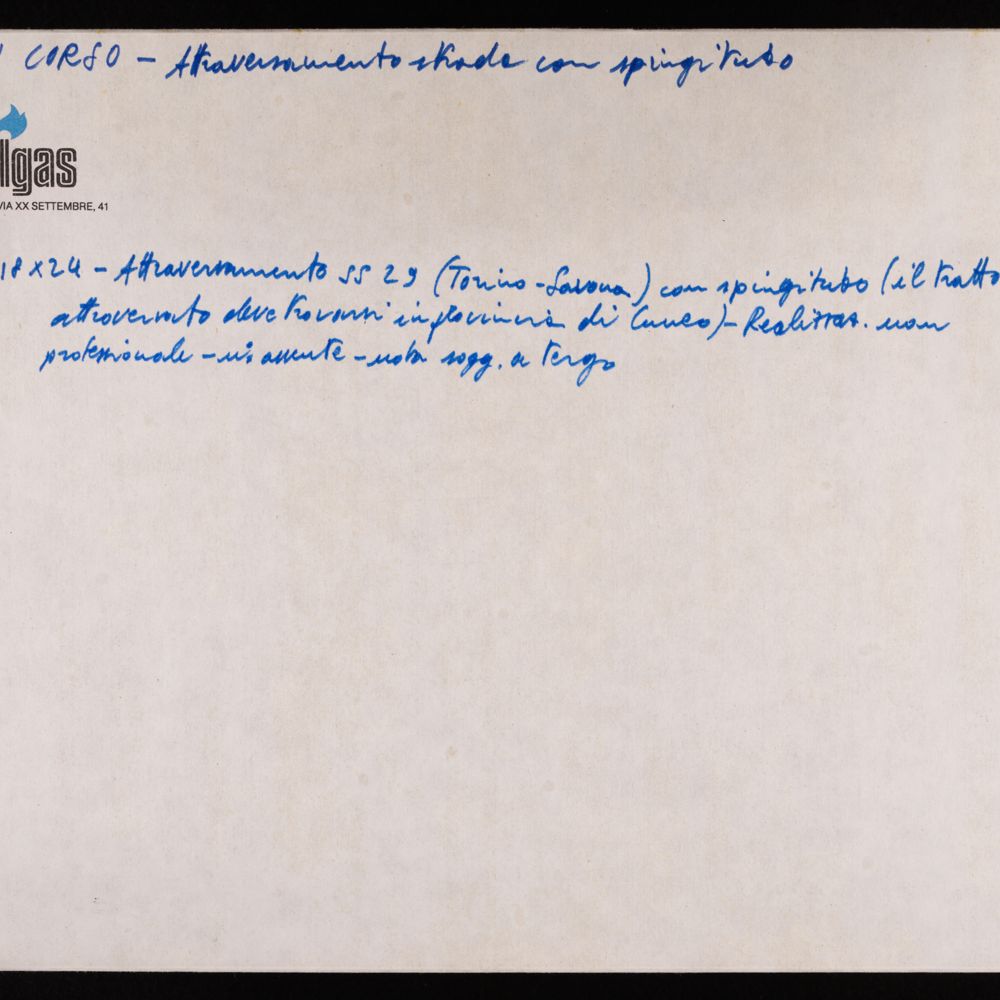 CORSO - Attraversamento strada con spingitubo
lgas
VIA XX SETTEMBRE, 41
18x24 - Attraversamento SS 29 (Torino-Savona) con spingitubo (il tratto
attraversato deve trovarsi in provincia di Cuneo) - Realizzaz. non
professionale - n° assente - nota sogg. a tergo